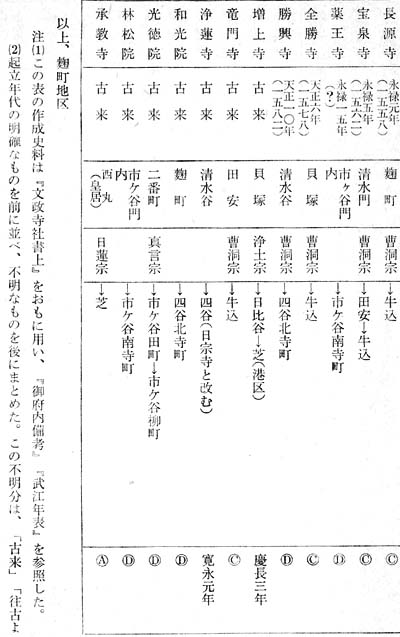 長源寺 永禄元年(一五五八) 麹町 曹洞宗 →牛込 Ⓒ
宝泉寺 永禄五年(一五六二) 清水門 曹洞宗 →田安→牛込 Ⓒ
薬王寺 永禄一五年(?) 市ヶ谷門内 →市ケ谷南寺町 Ⓓ
全勝寺 天正六年(一五七八) 貝塚 曹洞宗 →牛込 Ⓒ
勝興寺 天正一〇年(一五八二) 清水谷 曹洞宗 →四谷北寺町 Ⓓ
増上寺 古来 貝塚 浄土宗 →日比谷→芝(港区) 慶長三年
竜門寺 古来 田安 曹洞宗 →牛込 Ⓒ
浄蓮寺 古来 清水谷 →四谷(日宗寺と改む) 寛永元年
和光院 古来 麹町 →四谷北寺町 Ⓓ
光徳院 古来 二番町 真言宗 →市ケ谷田町→市ケ谷柳町 Ⓓ
林松院 古来 市ケ谷門内 →市ケ谷南寺町 Ⓓ
承教寺 古来 西丸(皇居) 日蓮宗 →芝 Ⓐ
以上、麹町地区
注(1)この表の作成史料は『文政寺社書上』をおもに用い、『御府内備考』『武江年表』を参照した。
(2)起立年代の明確なものを前に並べ、不明なものを後にまとめた。この不明分は、「古来」「往古よ